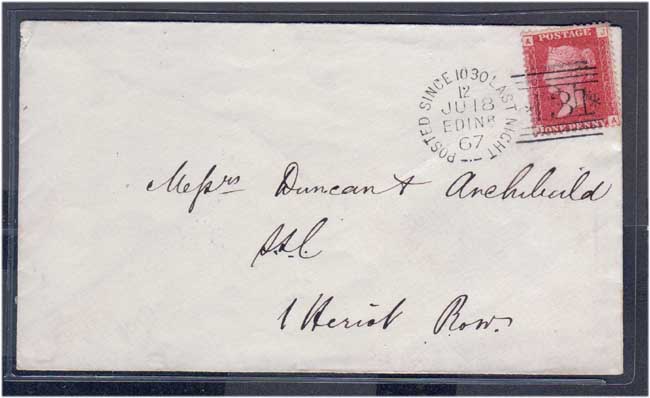 A J
POSTAGE
POSTED SINCE 10 30 LAST NIGHT
12
JU 18
EDINR
67
131
J ONE PENNY A
Messrs Duncan & Archibald
S.S.C.
1 Heriot Row.